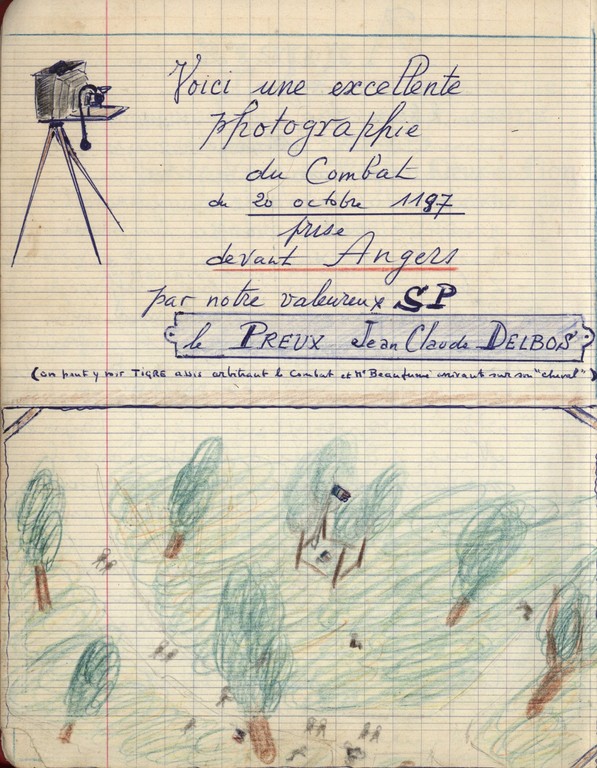 Voici une excellente
photographie
du Combat
du 20 octobre 1197
prise
devant Angers
par notre valeureux SP
le PREUX Jean Claude DELBOS
(on peut y voir TIGRE assis arbitrant le Combat et Mr Beaufumé arrivant sur son "cheval")